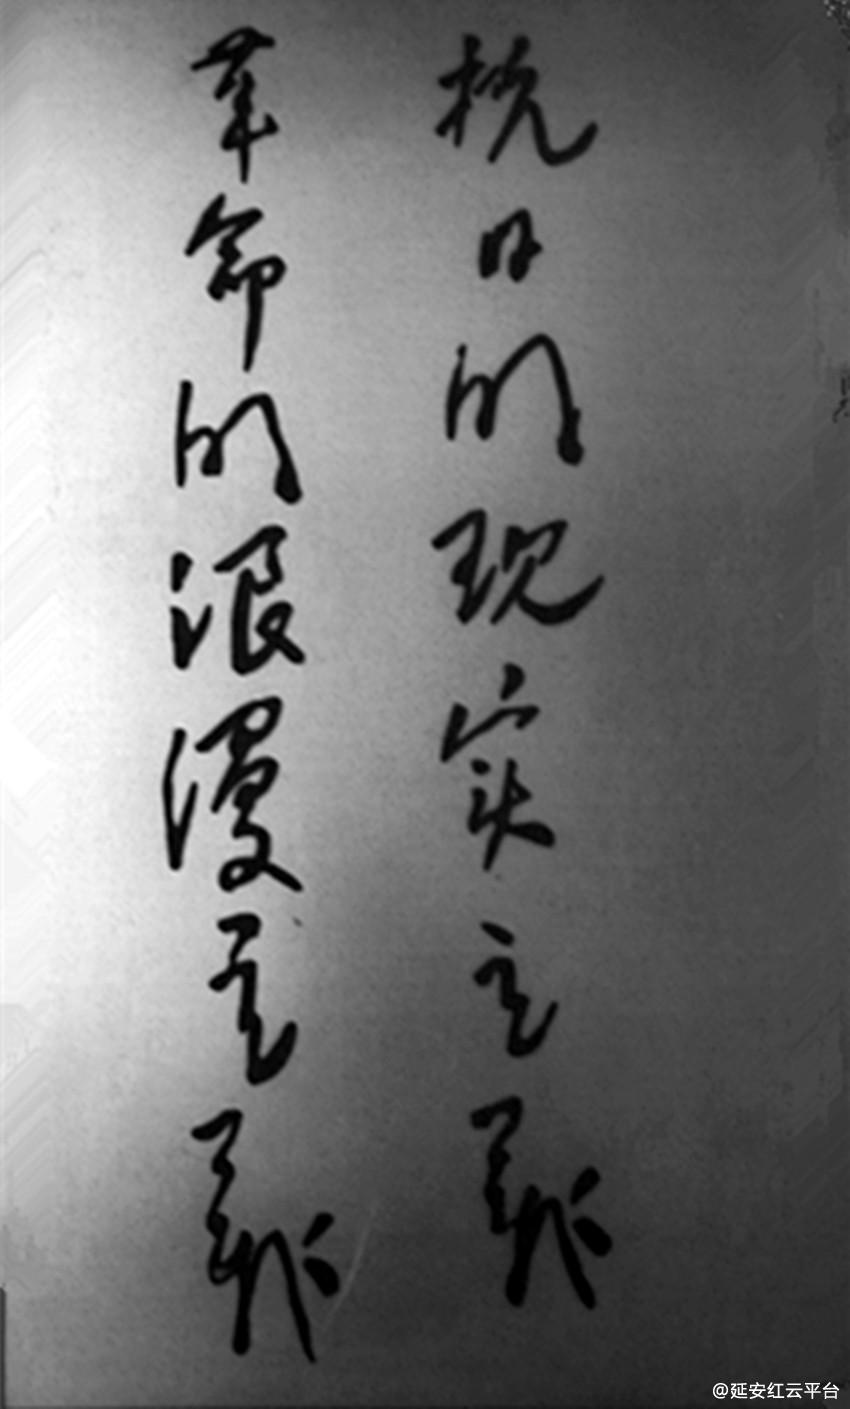 抗日的现实主义
革命的浪漫主义
@延安红云平台